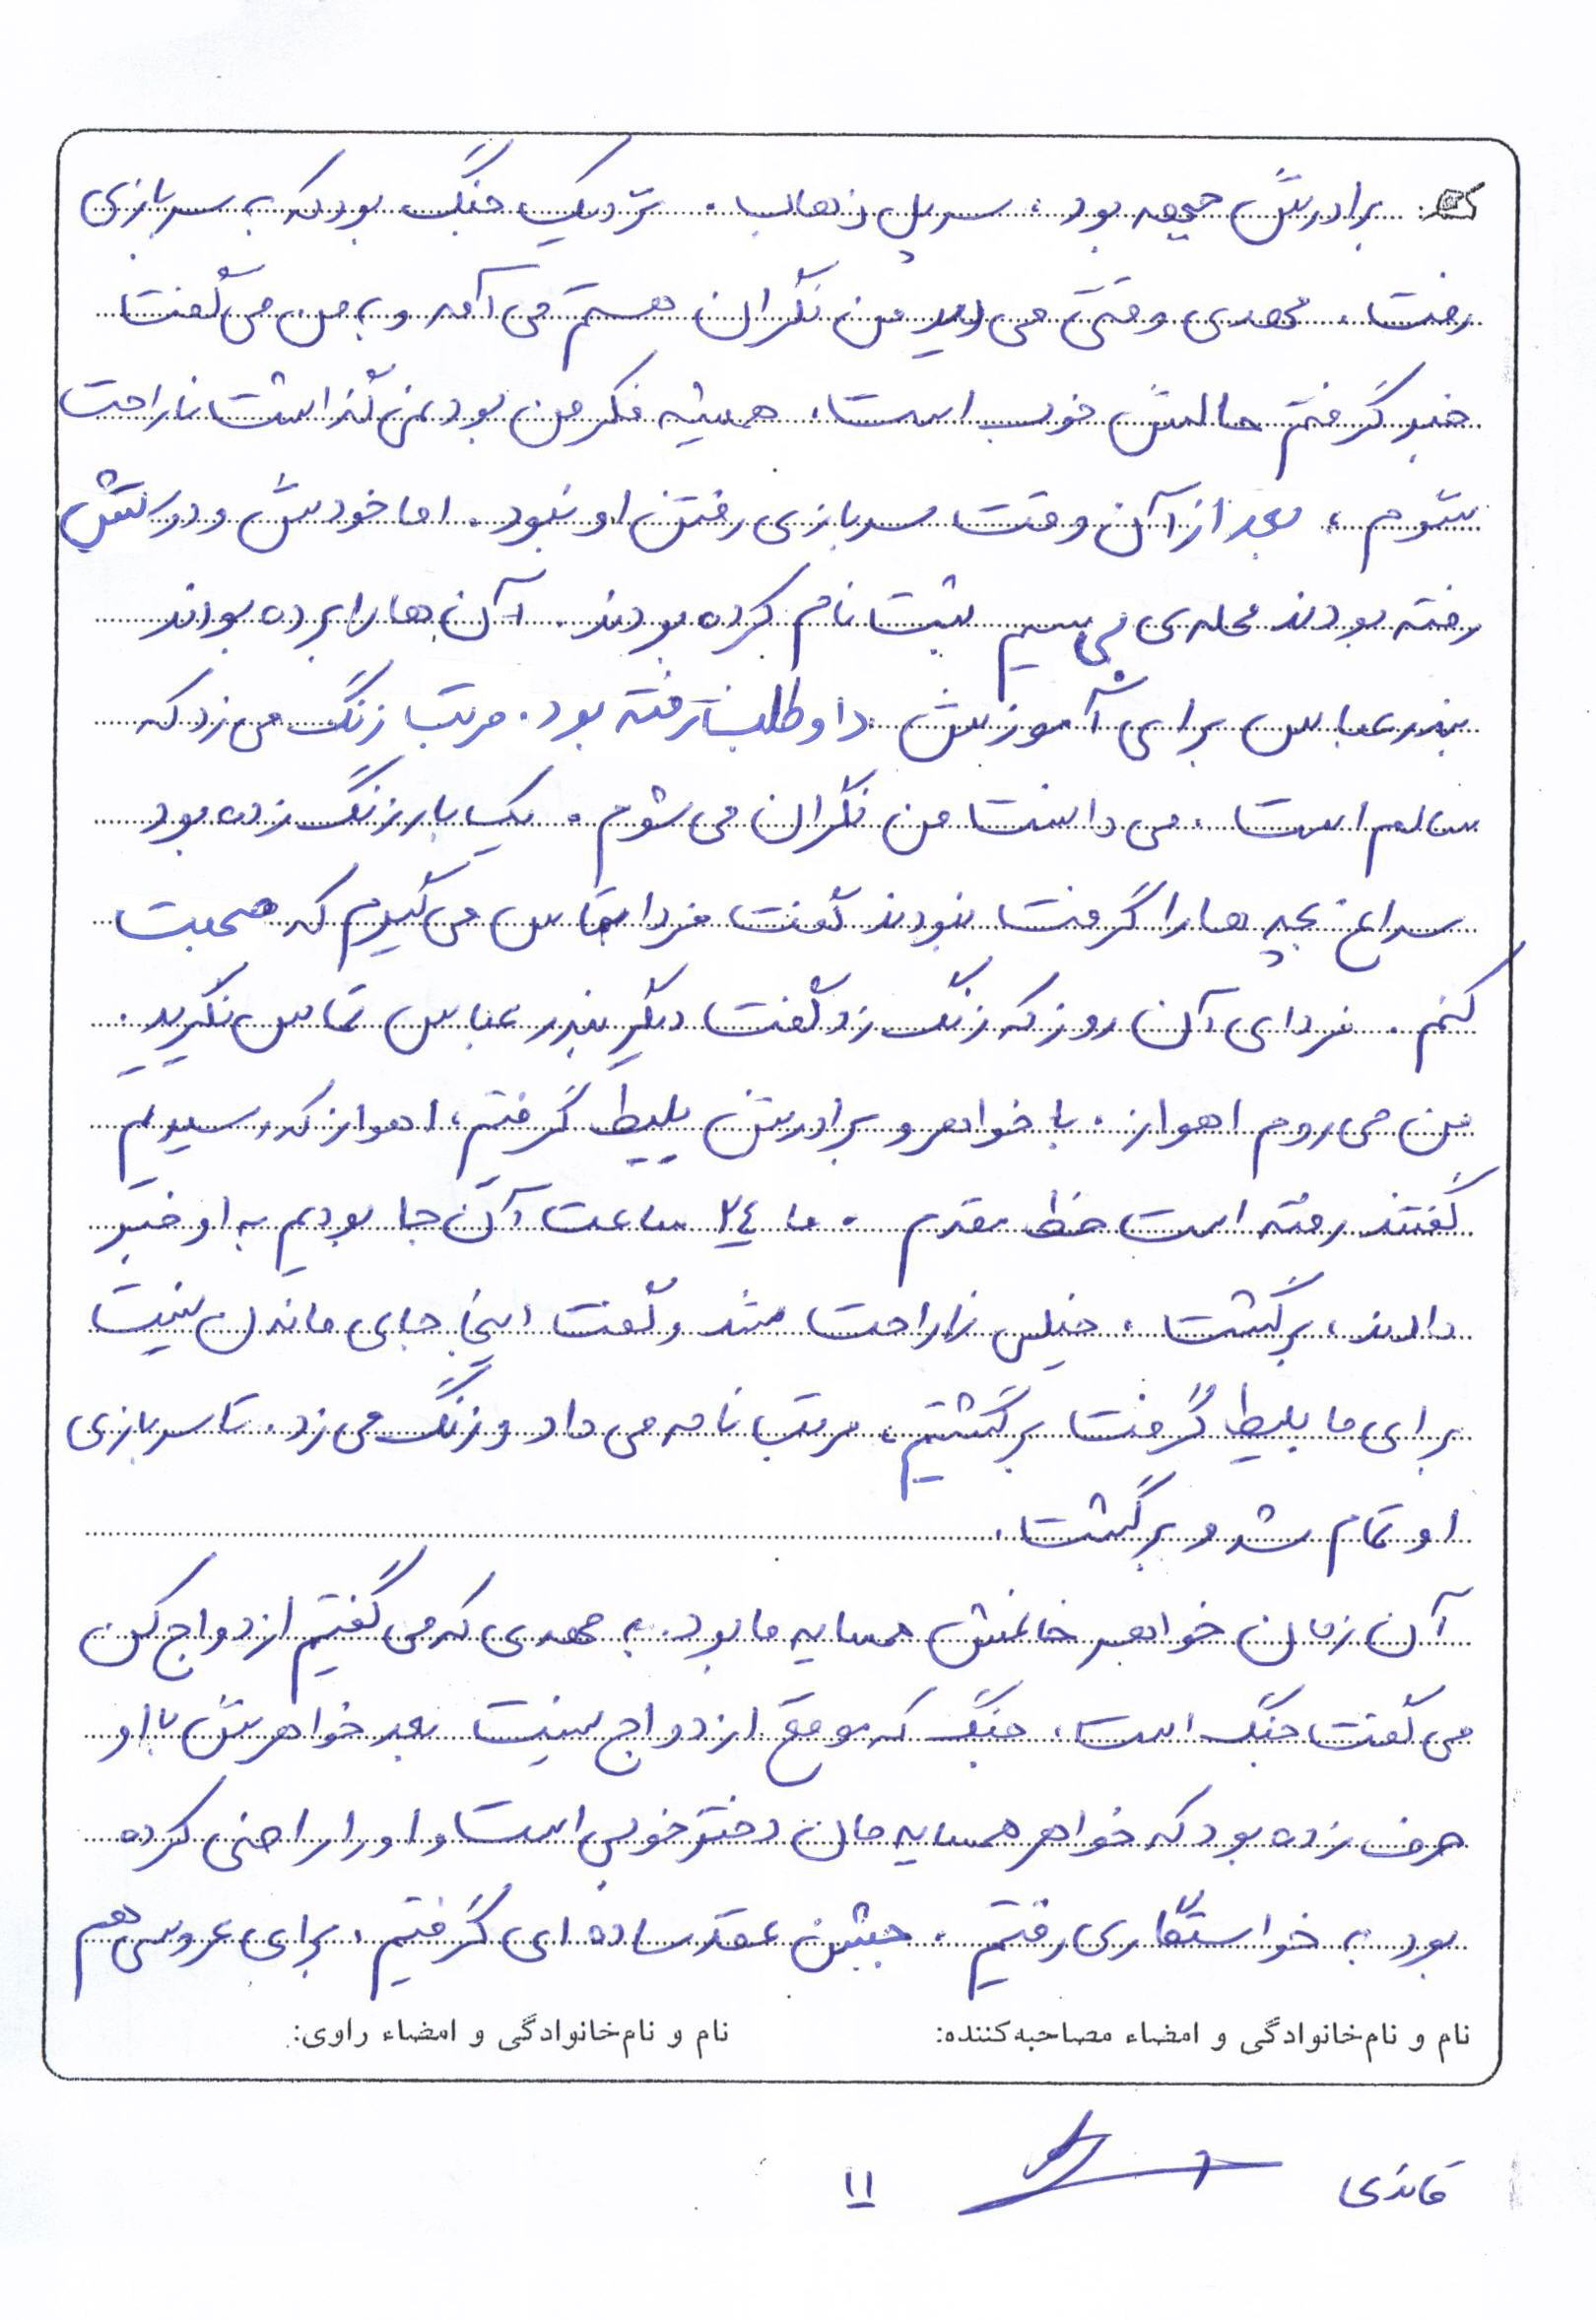 برادرش جبهه بود، سرپل ذهاب. نزدیک جنگ بود که به سربازی
رفت. مهدی وقتی می دید من نگران هستم می آمد و به من می گفت
خبر گرفتم حالش خوب است. همیشه فکر من بود نمی گذاشت ناراحت
شوم، بعد از آن وقت سربازی رفتن او نبود. اما خودش و دوستش
رفته بودند محله ی بی سیم ثبت نام کرده بودند. آن ها را برده بودند
بندرعباس برای آموزش. داوطلبانه رفته بود. مرتب زنگ می زد که
سالم است. می دانست من نگران می شوم. یک بار زنگ زده بود
سراغ بچه ها را گرفت نبودند گفت فردا تماس می گیرم که صحبت
کنم. فردای آن روز که زنگ زد گفت دیگر بندر عباس تماس نگیرید.
من می روم اهواز. با خواهر و برادرش بلیط گرفتیم، اهواز که رسیدیم
گفتند رفته است خط مقدم. ما ۲٤ ساعت آن جا بودیم به او خبر
دادند، برگشت. خیلی ناراحت شد و گفت اینجا جای ماندن نیست
برای ما بلیط گرفت برگشتیم، مرتب نامه می داد و زنگ می زد. تا سربازی
او تمام شد و برگشت.
آن زمان خواهر خانمش همسایه ما بود. به مهدی که می گفتیم ازدواج کن
می گفت جنگ است، جنگ که موقع ازدواج نیست بعد خواهرش با او
حرف زده بود که خواهر همسایه مان دختر خوبی است و او را راضی کرده
بود به خواستگاری رفتیم. جشن عقد ساده ای گرفتیم. برای عروسی هم
نام و نام خانوادگی و امضاء مصاحبه کننده: نام و نام خانوادگی و امضاء راوی:
۱۱